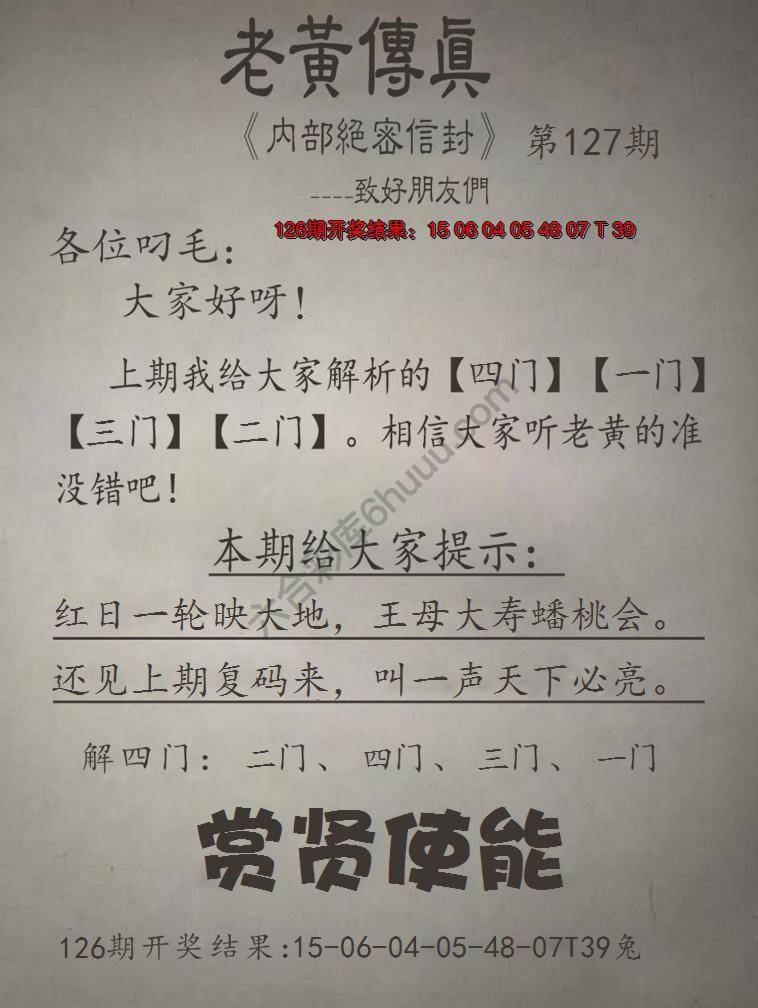 老黃傳眞
《内部絕密信封》 第127期
----致好朋友們
126期开奖结果：15 06 04 05 48 07 T 39
各位叼毛：
大家好呀！
上期我给大家解析的【四门】【一门】
【三门】【二门】。相信大家听老黄的准
没错吧！
本期给大家提示：
红日一轮映大地，王母大寿蟠桃会。
还见上期复码来，叫一声天下必亮。
解四门：二门、四门、三门、一门
赏贤使能
126期开奖结果:15-06-04-05-48-07T39兔
六合彩库6huuu.com